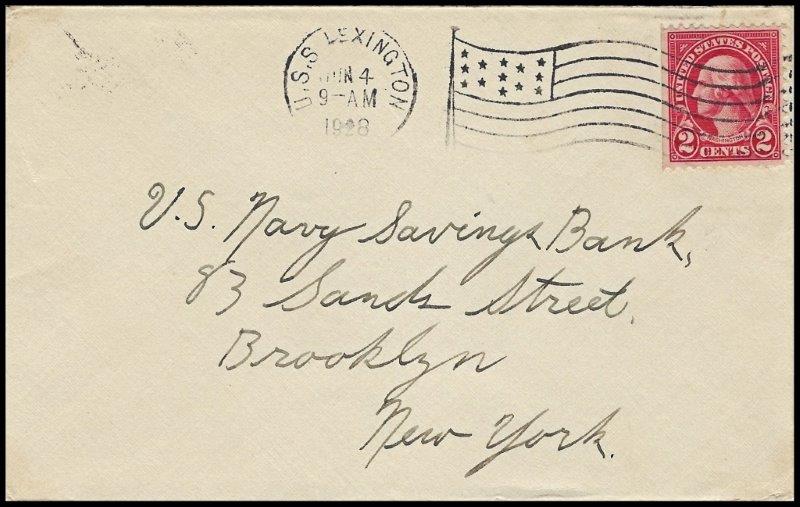 U.S.S. LEXINGTON
JUN 4
9-AM
1928
UNITED STATES POSTAGE
WASHINGTON
2 CENTS 2
U.S. Navy Savings Bank,
83 Sands Street,
Brooklyn
New York.